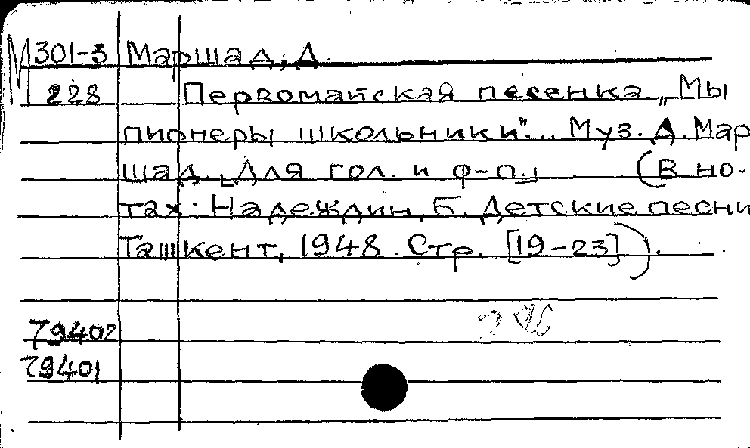 М 301-3 Маршад, Д.
228 Первомайская песенка „Мы
пионеры школьники"... Муз. Д. Мар
шад. [Для гол. и ф-п.] (В но-
тах: Надеждин, Б. Детские песни
Ташкент, 1948. Стр. [19-23]).
79402
79401